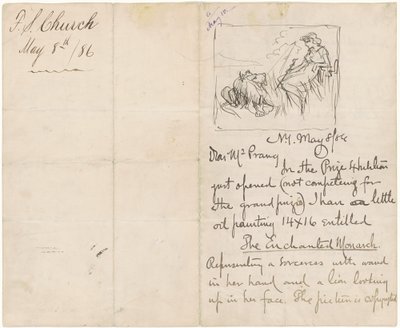 F. S. Church
May 8th/86
May 10
N.Y. May 8/86
Dear Mr Prang
In the Prize Exhibition
just opened (not competing for
the grand prize) I have a little
oil painting 14x16 entitled
The Enchanted Monarch.
Representing a sorceress with wand
in her hand and a lion looking
up in her face. The picture is copyrighted